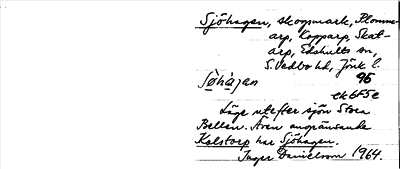 Sjöhagen, skogsmark, Plomme-
arp, Kopparp, Skat-
arp, Edshults sn,
S. Vedbo hd, Jönk. l.
Sø̀hàgen 96
ek 6F5e
Läge utefter sjön Stora
Bellen. Även angränsande
Kalstorp har Sjöhagen.
Inger Danielsson 1964.